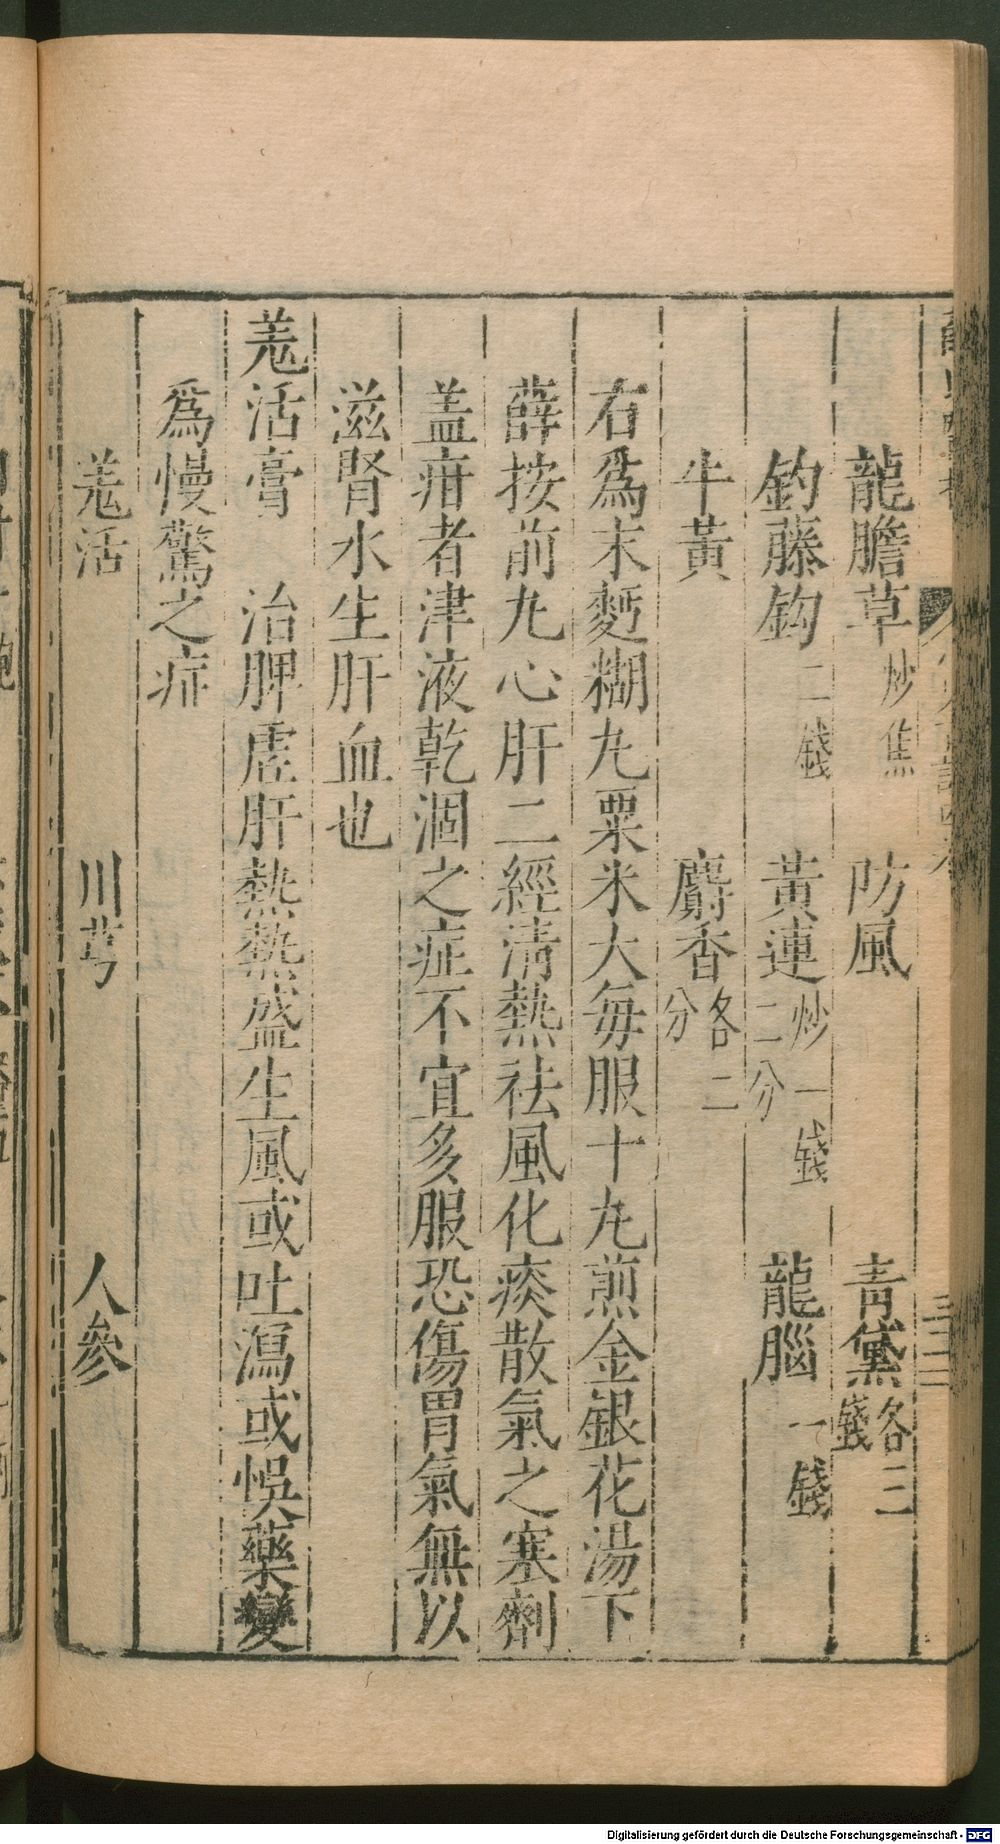 龍膽草炒焦　防風　青黛各三錢
釣藤鈎二錢　黃連炒一錢二分　龍腦一錢
牛黃　麝香各二分
右爲末麪糊丸粟米大每服十丸煎金銀花湯下
薛按前丸心肝二經清熱祛風化痰散氣之塞劑
盖疳者津液乾涸之症不宜多服恐傷胃氣無以
滋腎水生肝血也
羗活膏　治脾虛肝熱熱盛生風或吐瀉或悞藥變
爲慢驚之症
羗活　川芎　人參
Digitalisierung gefördert durch die Deutsche Forschungsgemeinschaft - DFG